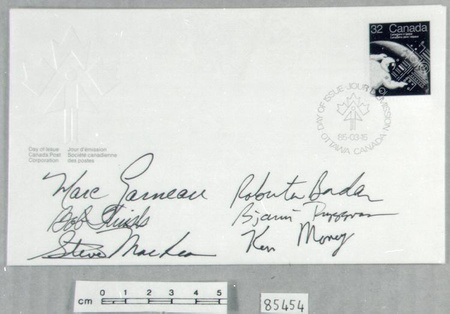 32 Canada
DAY OF ISSUE · JOUR D'ÉMISSION
85-03-15
OTTAWA CANADA
Day of Issue Jour d'émission
Canada Post Société canadienne
Corporation des postes
Marc Garneau Roberta Bondar
Bob Thirsk Bjarni Tryggvason
Steve MacLean Ken Money
cm 0 1 2 3 4 5
85454